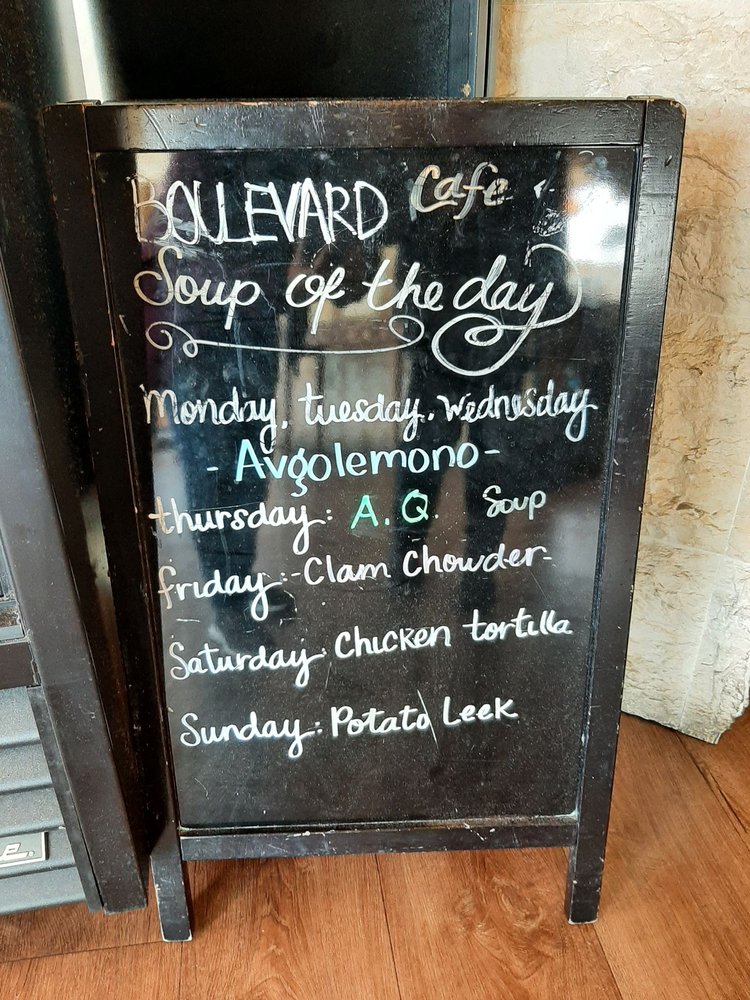 BOULEVARD Cafe
Soup of the day
Monday, tuesday, Wednesday
- Avgolemono -
thursday: A. Q. Soup
friday: - Clam Chowder -
Saturday: Chicken tortilla
Sunday: Potato Leek